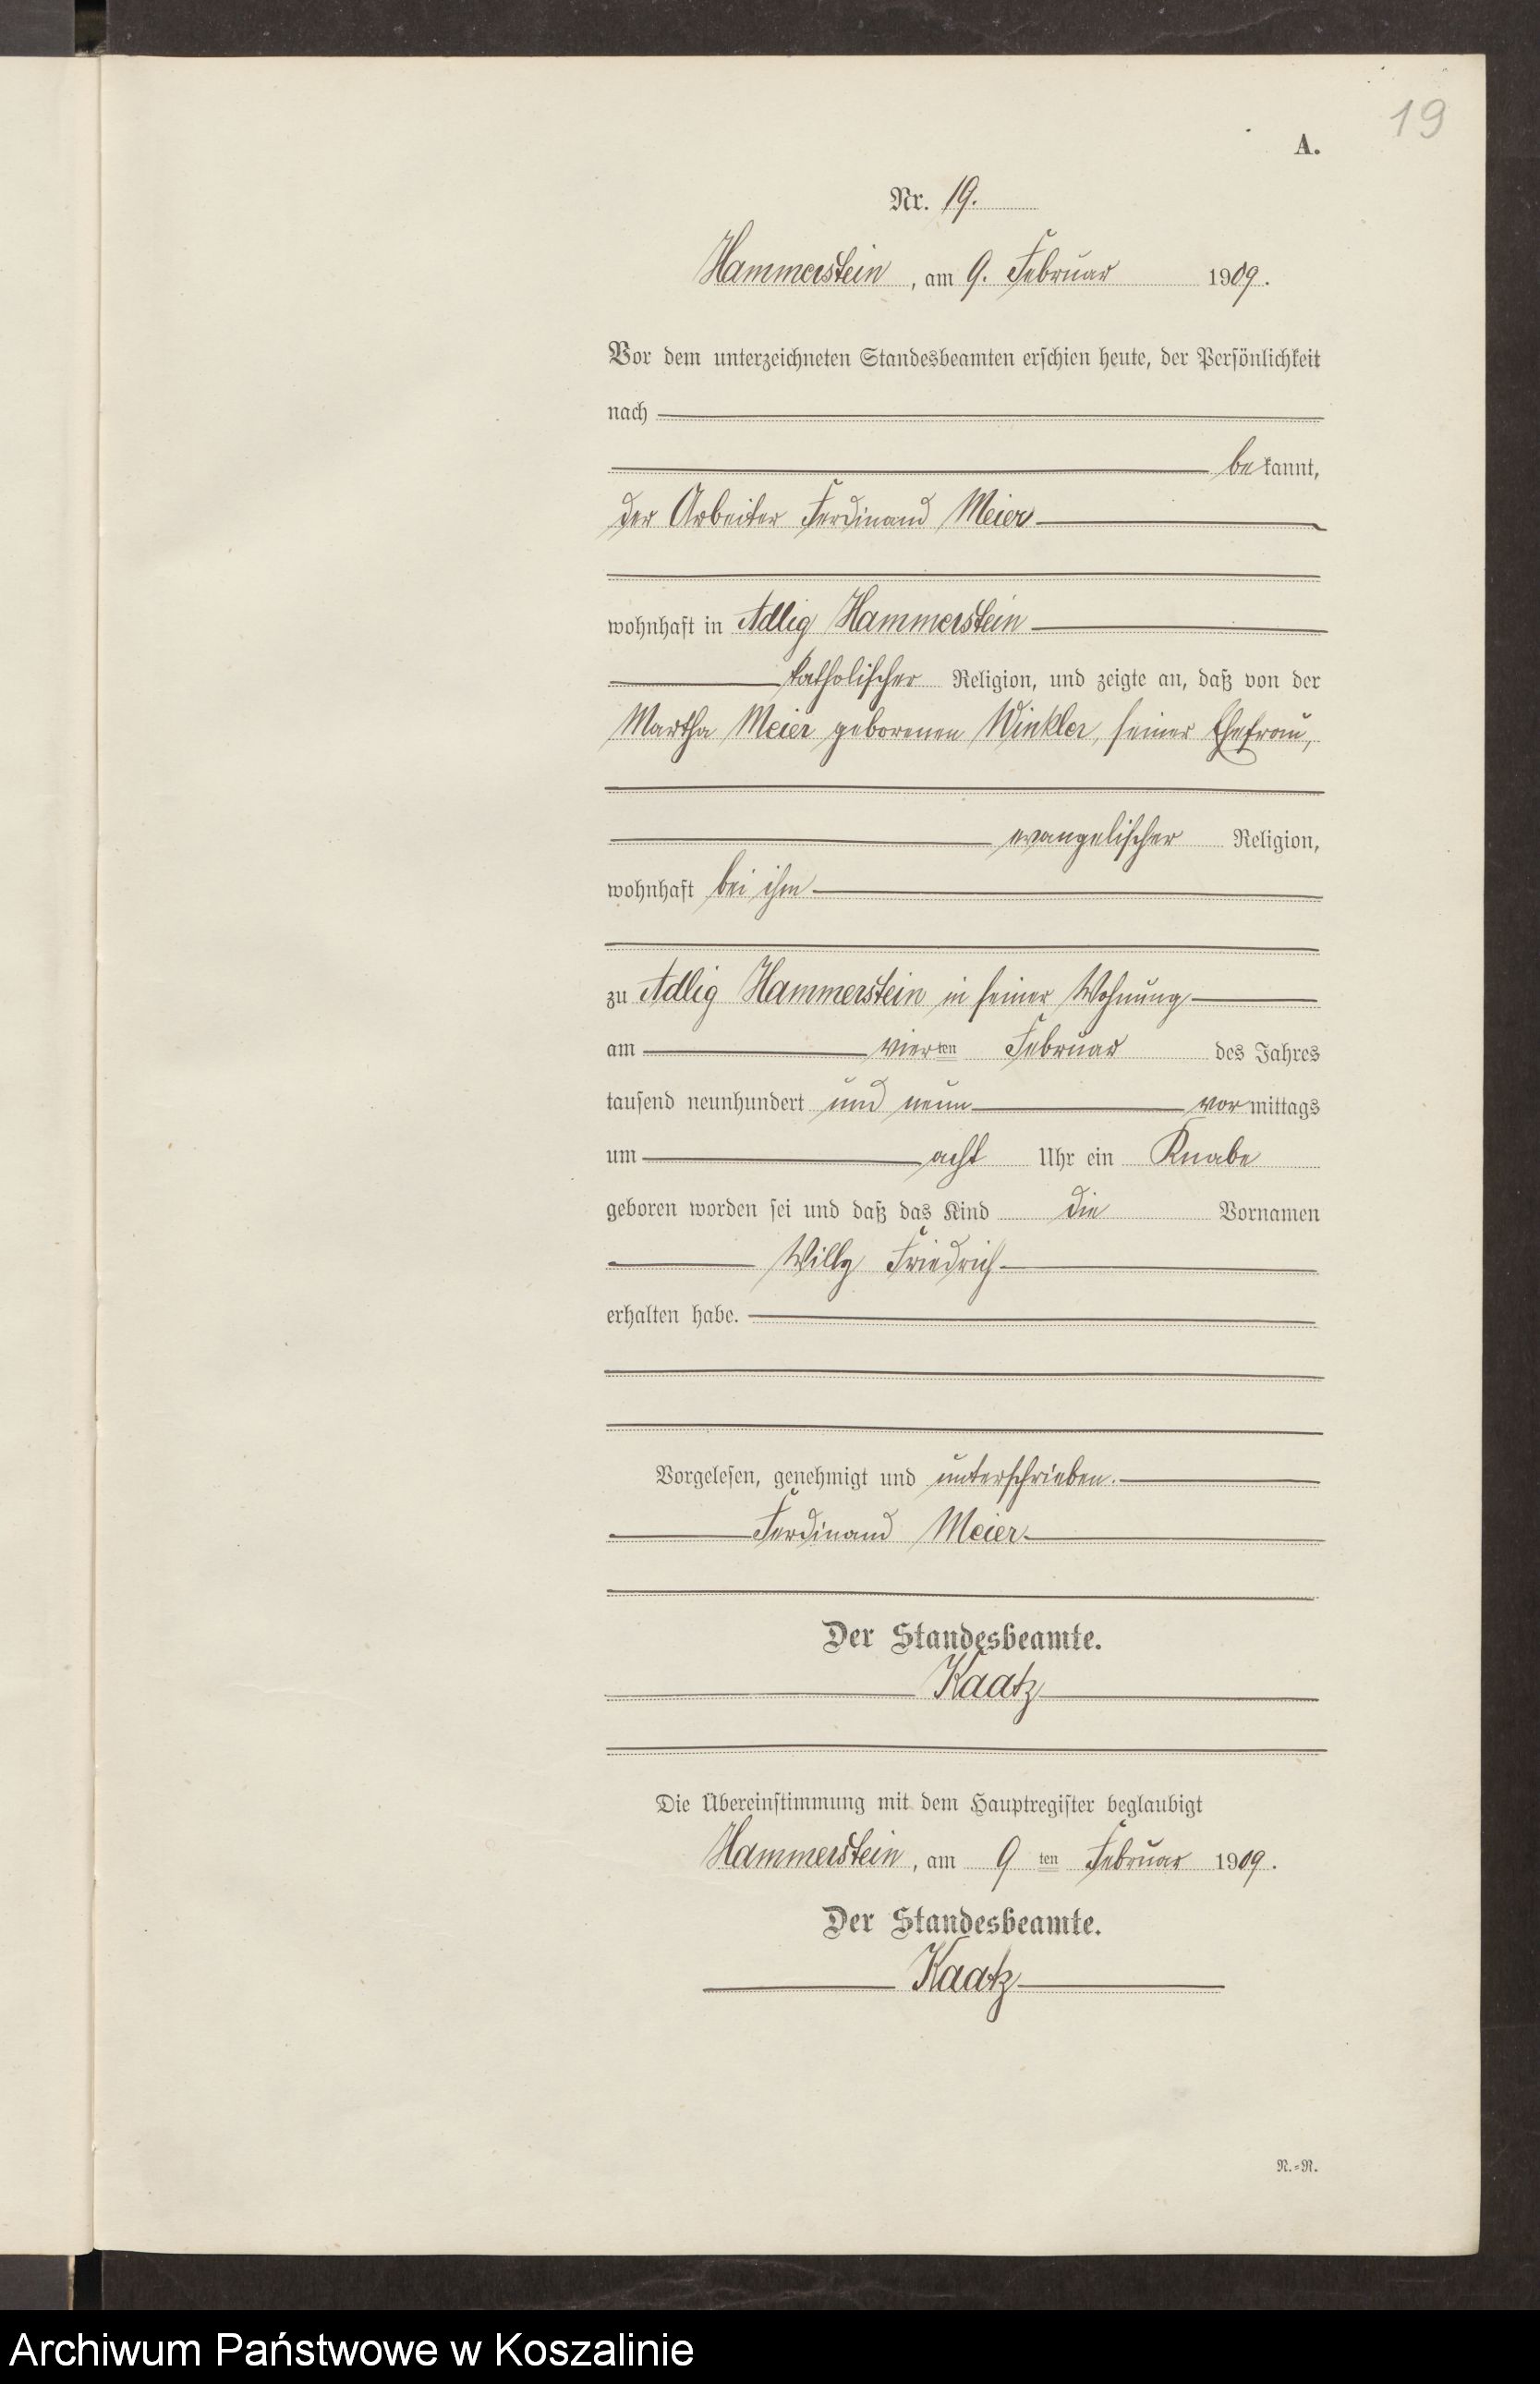 19
A.
Nr. 19.
Hammerstein, am 9. Februar 1909.
Vor dem unterzeichneten Standesbeamten erschien heute, der Persönlichkeit
nach
bekannt,
der Arbeiter Ferdinand Meier
wohnhaft in Adlig Hammerstein
katholischer Religion, und zeigte an, daß von der
Martha Meier geborenen Winkler, seiner Ehefrau,
evangelischer Religion,
wohnhaft bei ihm
zu Adlig Hammerstein in seiner Wohnung
am vierten Februar des Jahres
tausend neunhundert und neun vormittags
um acht Uhr ein Knabe
geboren worden sei und daß das Kind die Vornamen
Willy Friedrich
erhalten habe.
Vorgelesen, genehmigt und unterschrieben.
Ferdinand Meier
Der Standesbeamte.
Kaatz
Die Übereinstimmung mit dem Hauptregister beglaubigt
Hammerstein, am 9ten Februar 1909.
Der Standesbeamte.
Kaatz
N.=N.
Archiwum Państwowe w Koszalinie